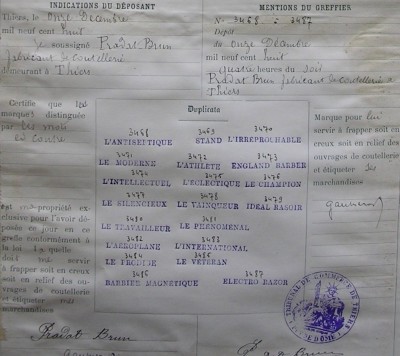 INDICATIONS DU DÉPOSANT
Thiers, le Onze Décembre
mil neuf cent huit
je soussigné Pradat-Brun
fabricant de coutellerie
demeurant à Thiers
MENTIONS DU GREFFIER
N° 3468 à 3487
Dépôt
du Onze Décembre
mil neuf cent huit
quatre heures du soir
Pradat Brun fabricant de coutellerie à
Thiers
Certifie que les
marques distinguée
par les mots
ci contre
est ma propriété ex-
clusive pour l'avoir dé-
posée ce jour en ce
greffe conformément
à la loi
doit me servir
à frapper soit en creux
soit en relief des ouvra-
ges de coutellerie
et étiqueter mes
marchandises
Pradat Brun
Duplicata
3468 3469 3470
L'ANTISEPTIQUE STAND L'IRRÉPROCHABLE
3471 3472 3473
LE MODERNE L'ATHLÈTE ENGLAND BARBER
3474 3475 3476
L'INTELLECTUEL L'ÉCLECTIQUE LE CHAMPION
3477 3478 3479
LE SILENCIEUX LE VAINQUEUR IDÉAL RASOIR
3480 3481
LE TRAVAILLEUR LE PHÉNOMÉNAL
3482 3483
L'AÉROPLANE L'INTERNATIONAL
3484 3485
LE PRODIGE LE VÉTÉRAN
3486 3487
BARBIER MAGNÉTIQUE ELECTRO RAZOR
Marque pour lui
servir à frapper soit en
creux soit en relief des
ouvrages de coutellerie
et étiqueter ses
marchandises
TRIBUNAL DE COMMERCE DE THIERS